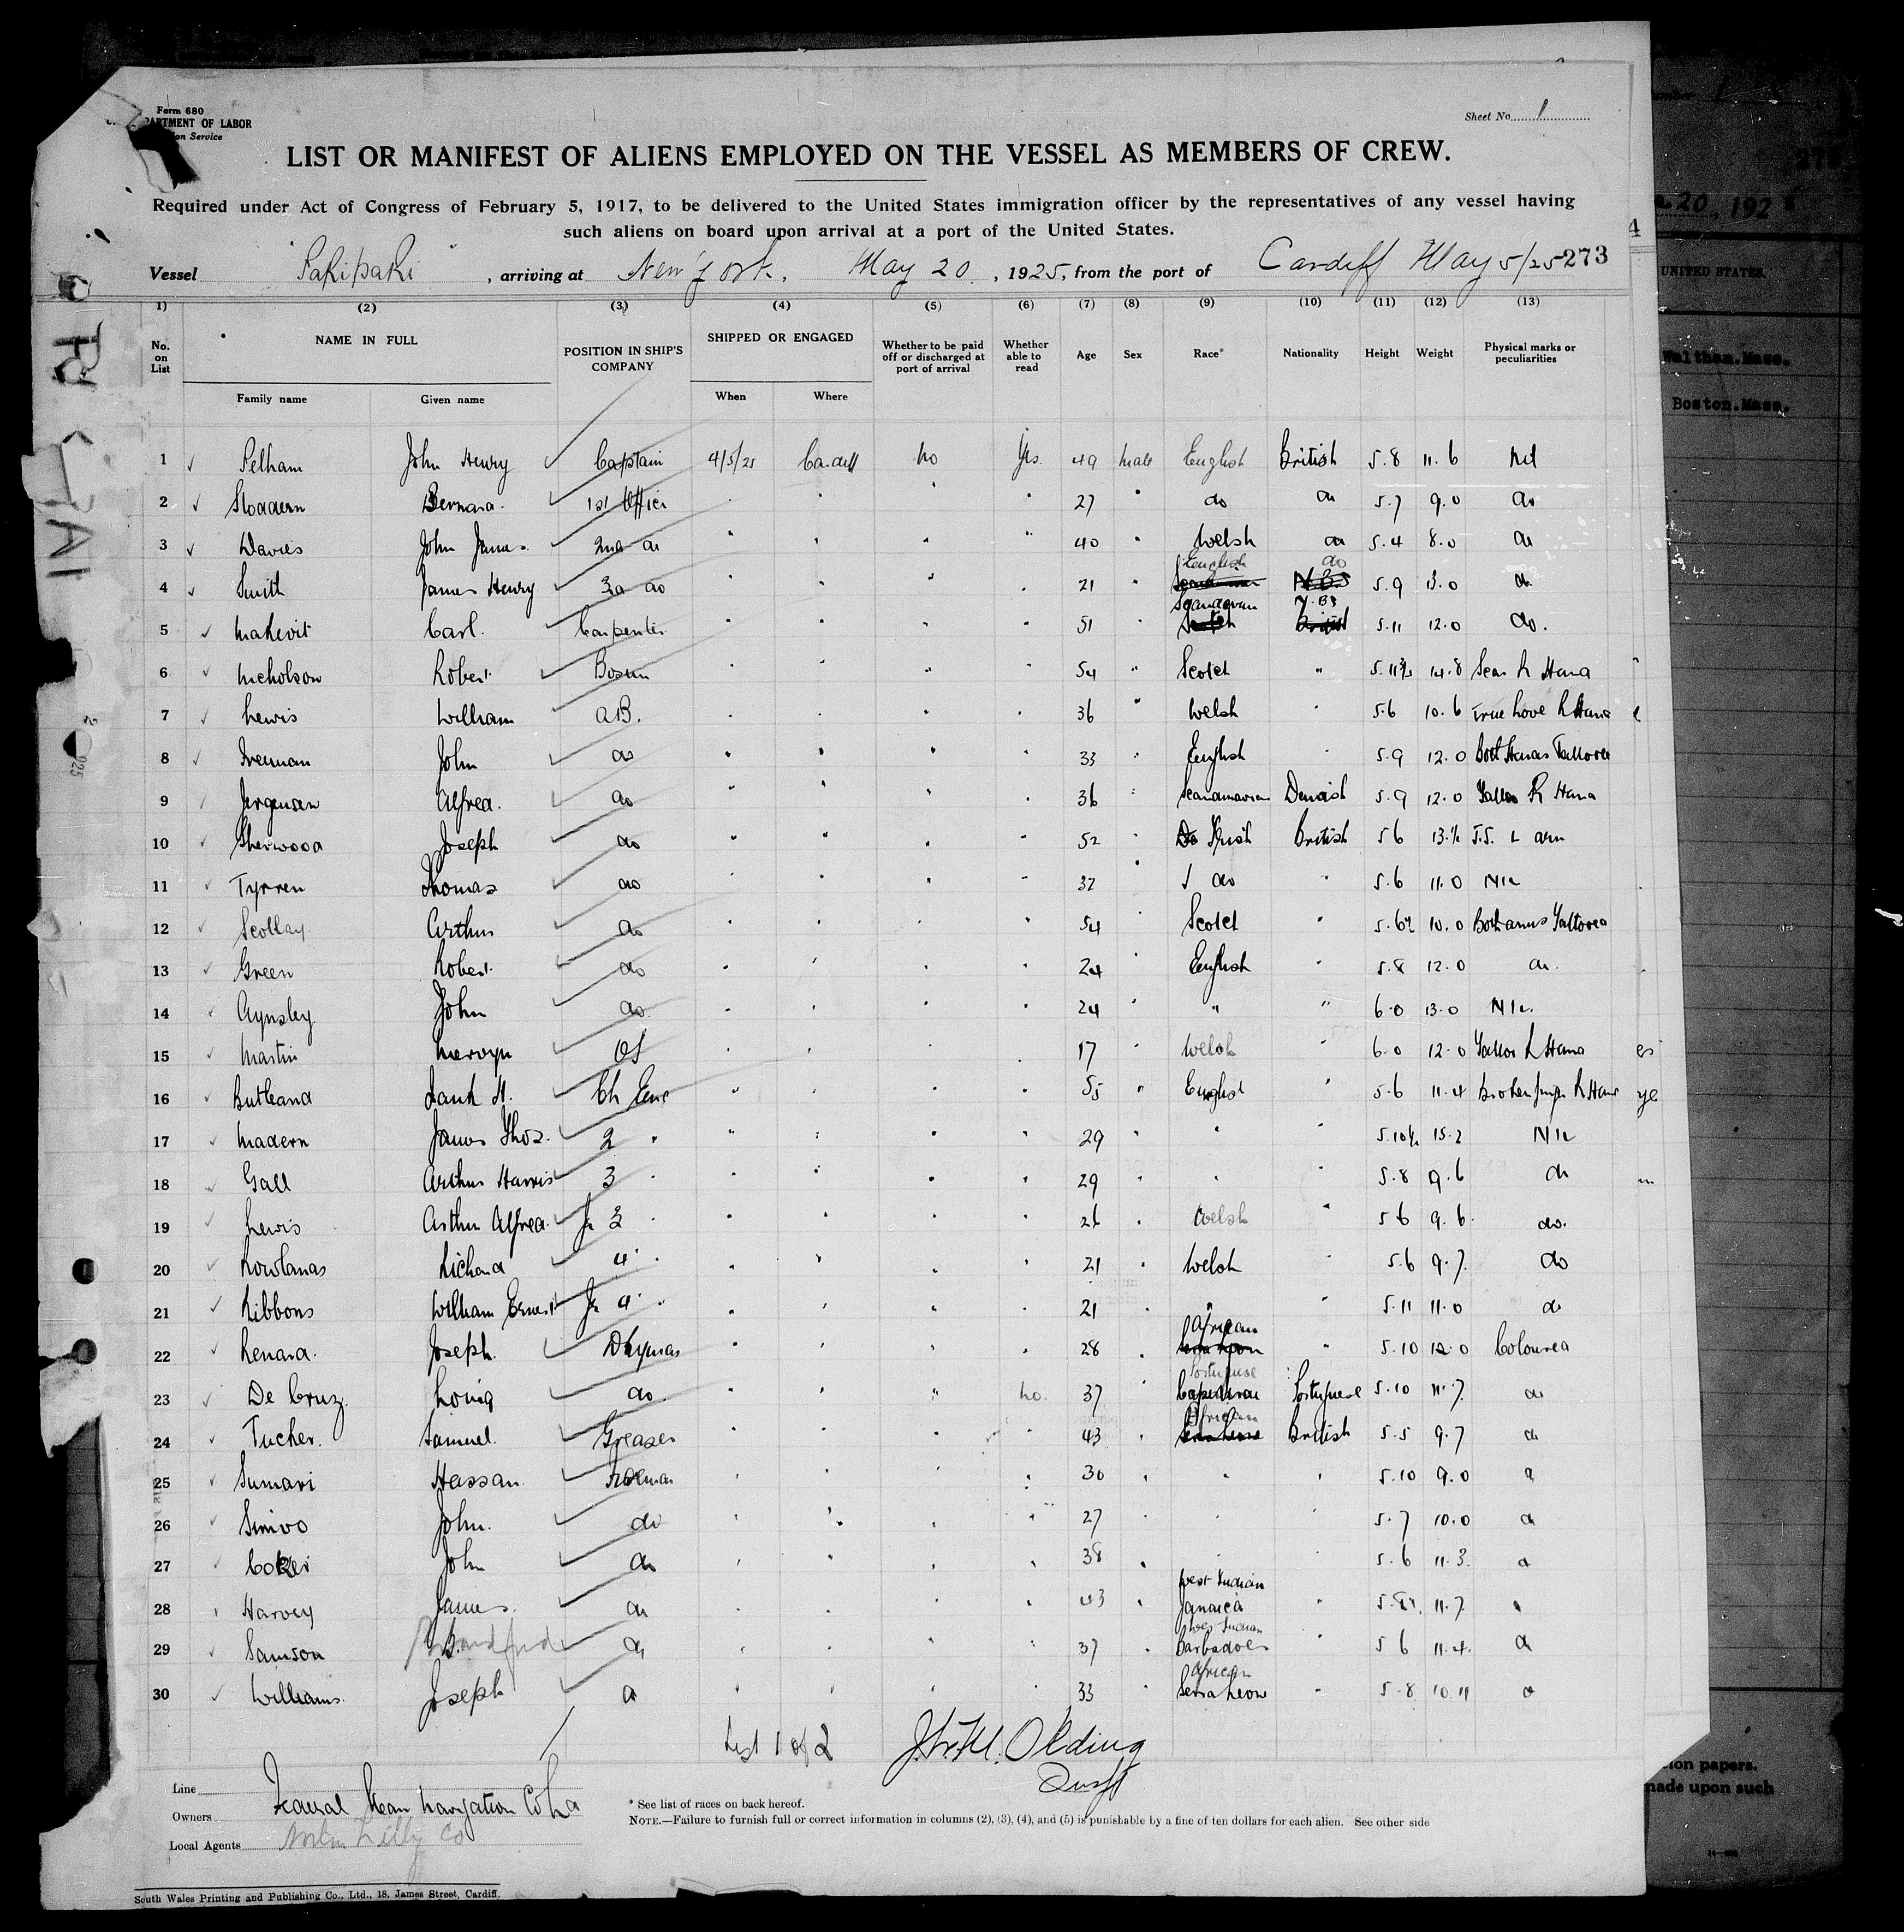 Form 680
DEPARTMENT OF LABOR
Service
Sheet No. 1
LIST OR MANIFEST OF ALIENS EMPLOYED ON THE VESSEL AS MEMBERS OF CREW.
Required under Act of Congress of February 5, 1917, to be delivered to the United States immigration officer by the representatives of any vessel having
such aliens on board upon arrival at a port of the United States.
Vessel , arriving at New York, May 20, 1925, from the port of Cardiff May 5/25 273
(2) (3) (4) (5) (6) (7) (8) (9) (10) (11) (12) (13)
No. on List NAME IN FULL POSITION IN SHIP'S COMPANY SHIPPED OR ENGAGED Whether to be paid off or discharged at port of arrival Whether able to read Age Sex Race* Nationality Height Weight Physical marks or peculiarities
Family name Given name When Where
1 Pelham John Henry Captain 4/5/25 Cardiff No Yes 49 Male English British 5.8 11.6 Nil
2 Bernard 1st Officer " " " " 27 " do do 5.7 9.0 do
3 Davies John James 2nd do " " " " 40 " Welsh do 5.4 8.0 do
4 Smith James Henry 3d do " " " " 21 " English do 5.9 do
5 Carl Carpenter " " " " 51 " N.B. 5.11 12.0 do.
6 Nicholson Robert Bosun " " " " 54 " Scotch " 14.8 Scar R Hand
7 Lewis William AB. " " " " 36 " Welsh " 5.6 10.6 True Love R Hand
8 John do " " " " 33 " English " 5.9 12.0 Both Hands Tattooed
9 Jorgensen Alfred do " " " " 36 " Scandinavian Danish 5.9 12.0 R Hand
10 Sherwood Joseph do " " " " 52 " Irish British 5 6 J.S. L arm
11 Tyrren Thomas do " " " " " do " 5.6 11.0 Nil
12 Scollay Arthur do " " " " 54 " Scotch " 10.0 Both arms Tattooed
13 Green Robert do " " " " 24 " English " 5.8 12.0 do
14 Aynsley John do " " " " 24 " " " 6.0 13.0 Nil
15 Martin Mervyn OS " " " " 17 " Welsh " 6.0 12.0 Hand
16 Ch Eng " " " " 55 " English " 5.6 11.4 Broken R Hand
17 Madern James Thos. 2 " " " " " 29 " " " 15.2 Nil
18 Gall Arthur Harris 3 " " " " " 29 " " " 5.8 9.6 do
19 Lewis Arthur Alfred Jr 3 " " " " " 26 " Welsh " 5 6 9.6 do.
20 Rowlands Richard 4 " " " " " 21 " Welsh " 5.6 9.7 do
21 Ribbons William Ernest Jr 4 " " " " " 21 " " " 5.11 11.0 do
22 Joseph " " " " 28 " African " 5.10 12.0 Coloured
23 De Cruz do " " " No. 37 " Portuguese Portuguese 5.10 11.7 do
24 Tucker Samuel Greaser " " " " 43 " African British 5.5 9.7 do
25 Sumari Hassan " " " " 30 " " " 5.10 9.0 do
26 John do " " " " 27 " " " 5.7 10.0 do
27 Coker John do " " " " 38 " " " 5.6 11.3 do
28 Harvey James do " " " " 43 " West Indian Jamaica " 11.7 "
29 Samson do " " " " 37 " West Indian Barbadoes " 5 6 11.4 do
30 Williams Joseph do " " " " 33 " African Serra Leone " 5.8 10.11 do
List 1 of 2
Olding
Line
Owners Federal Steam Navigation Co Ltd
Local Agents Norton Lilly Co
* See list of races on back hereof.
NOTE.—Failure to furnish full or correct information in columns (2), (3), (4), and (5) is punishable by a fine of ten dollars for each alien. See other side
South Wales Printing and Publishing Co., Ltd., 18, James Street, Cardiff.
20, 192
UNITED STATES.
Waltham. Mass.
Boston. Mass.
papers.
made upon such